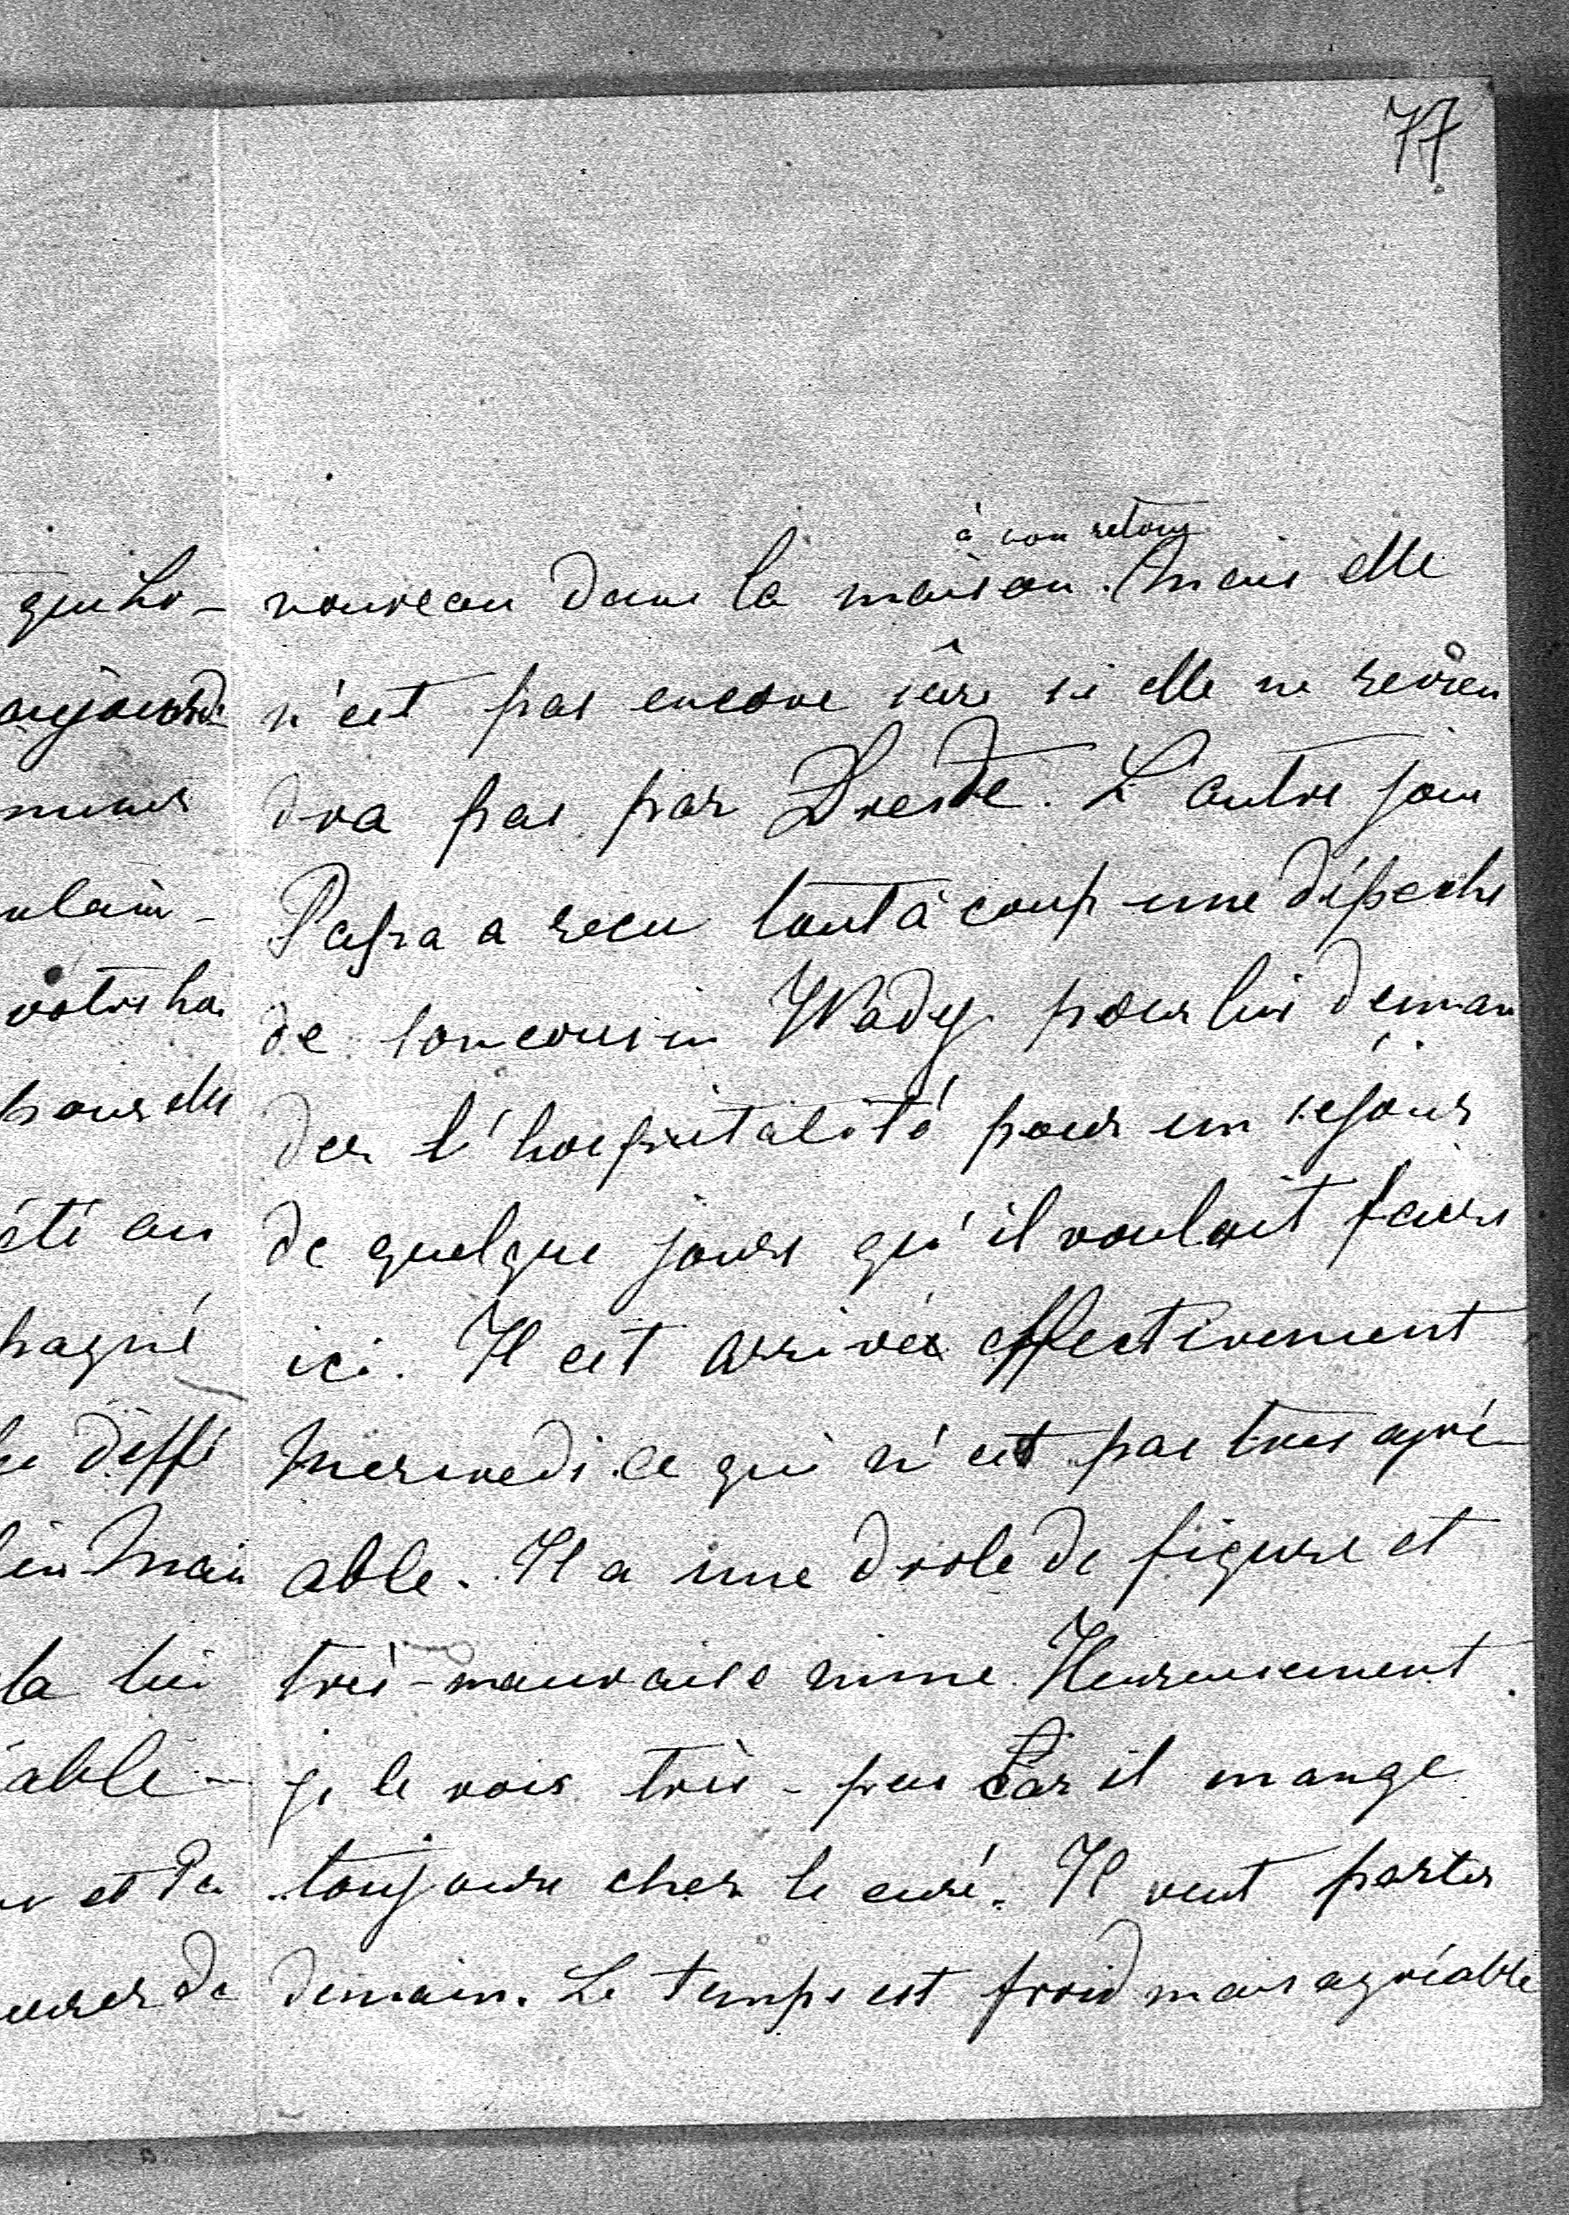 77
à son retour
nouveau dans la maison. Mais elle
n'est pas encore sûre si elle ne revien
dra pas par Dresde. L'autre jour
Papa a recu tout à coup une dépeche
de son cousin Wady pour lui deman
der l'hospitalité pour un sejour
de quelque jours qu'il voulait faire
ici. Il est arrivé effectivement
Mercredi ce qui n'est pas tres agré
able. Il a une drole de figure et
très-mauvaise mine. Heureusement
je le vois très-peu car il mange
toujours chez le curé. Il veut partir
demain. Le temps est froid mais agréable
aujourd
votre ha
pour elle
été au
pagné
diffi
la lui
able-
et Pa